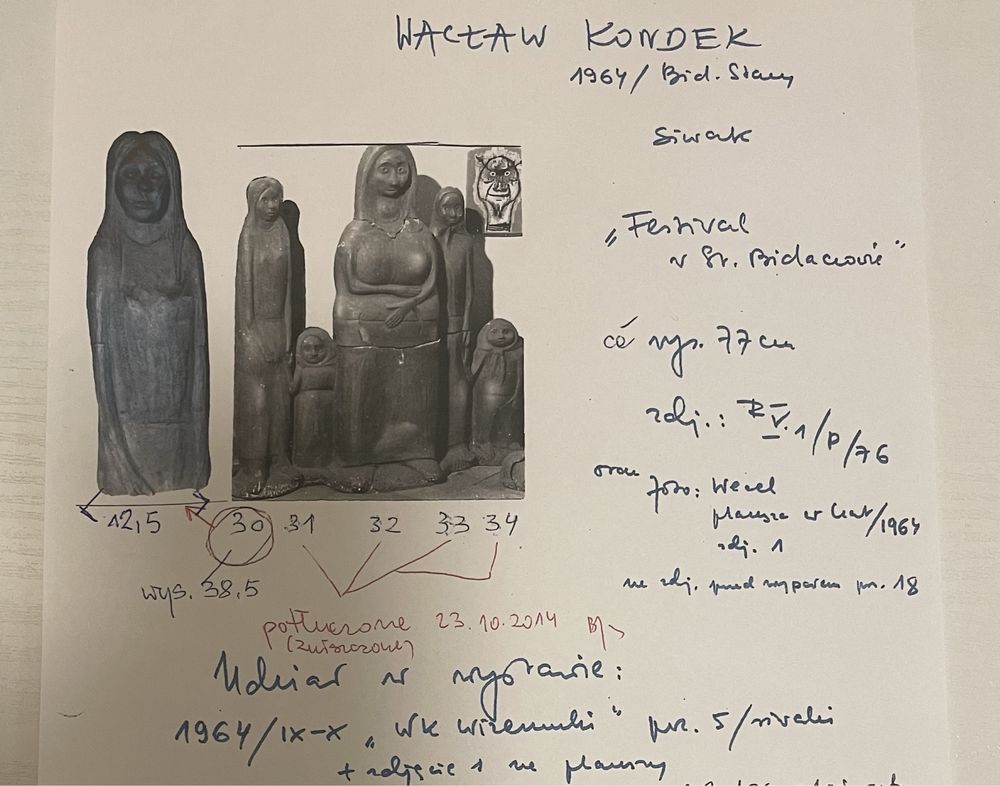 WACŁAW KONDEK
1964/ Bid. Stary
Siwak
„Festival
w St. Bidaczowie"
cé wys. 77 cm
zdj.: R V.1/P/76
oraz foto: Wecel
plansza w kat/1964
zdj. 1
na zdj. przed wypałem poz. 18
12,5 30 31 32 33 34
wys. 38,5
potłuczone 23.10.2014
(zniszczone)
Udział w wystawie:
1964/IX-X „WK wizerunki" poz. 5/siwaki
+ zdjęcie 1 na planszy